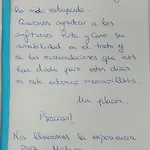 ha sido estupenda.
Queremos agradecer a los
anfitriones Rita y Caso su
amabilidad en el trato y
en las recomendaciones que nos
han dado para estos días
en este entorno maravilloso.
Un placer.
¡Gracias!
Nos llevamos la experiencia
para